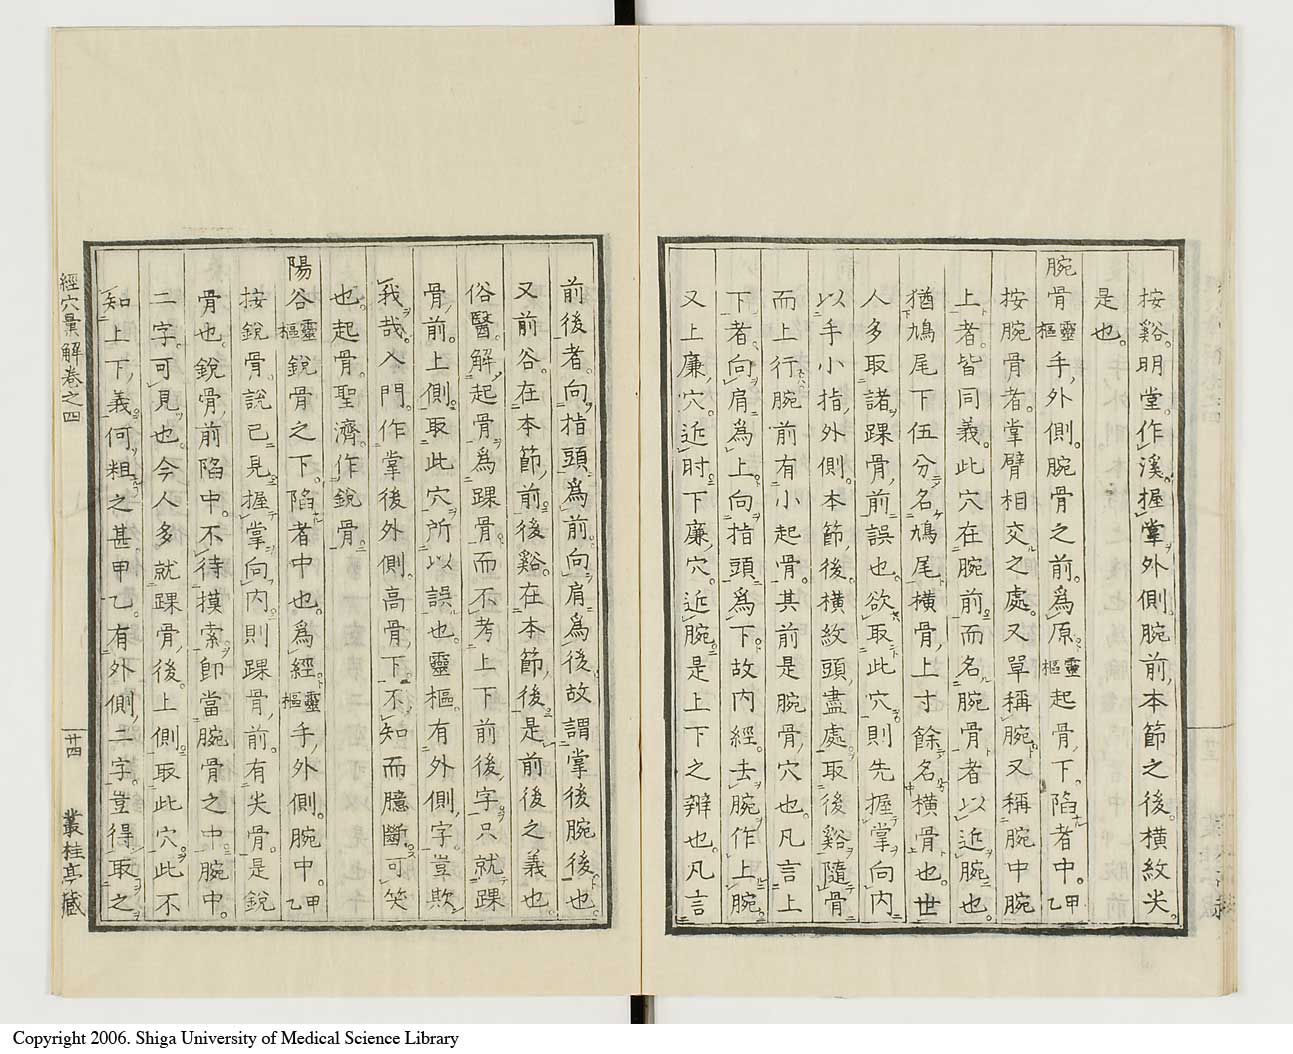 按谿。明堂。作溪。握掌外側。腕前。本節之後。橫紋尖
是也。
腕骨靈樞手外側。腕骨之前。爲原。靈樞起骨下。陷者中。甲乙
按腕骨者。掌臂相交之處。又單稱腕。又稱腕中腕
上者。皆同義。此穴在腕前。而名腕骨者。以近腕也。
猶鳩尾下伍分。名鳩尾。橫骨上寸餘。名橫骨也。世
人多取諸踝骨前。誤也。欲取此穴。則先握掌向内
以手小指外側。本節後。橫紋頭盡處。取後谿。隨骨
而上行。腕前有小起骨。其前是腕骨穴也。凡言上
下者。向肩爲上。向指頭爲下。故内經。去腕作上腕。
又上廉穴。近肘。下廉穴。近腕。是上下之辨也。凡言
前後者。向指頭爲前。向肩爲後。故謂掌後腕後也。
又前谷。在本節前。後谿。在本節後。是前後之義也。
俗醫。解起骨爲踝骨。而不考上下前後字。只就踝
骨前上側。取此穴。所以誤也。靈樞。有外側字。豈欺
我哉。入門。作掌後外側。高骨下。不知而臆斷。可笑
也。起骨。聖濟。作銳骨。
陽谷靈樞銳骨之下。陷者中也。爲經。靈樞手外側。腕中。甲乙
按銳骨。說已見。握掌向内。則踝骨前。有尖骨。是銳
骨也。銳骨前陷中。不待摸索。卽當腕骨之中。腕中。
二字。可見也。今人多就踝骨後。上側。取此穴。此不
知上下義。何粗之甚。甲乙。有外側二字。豈得取之
經穴彙解卷之四
廿四
叢桂亭藏
Copyright 2006. Shiga University of Medical Science Library